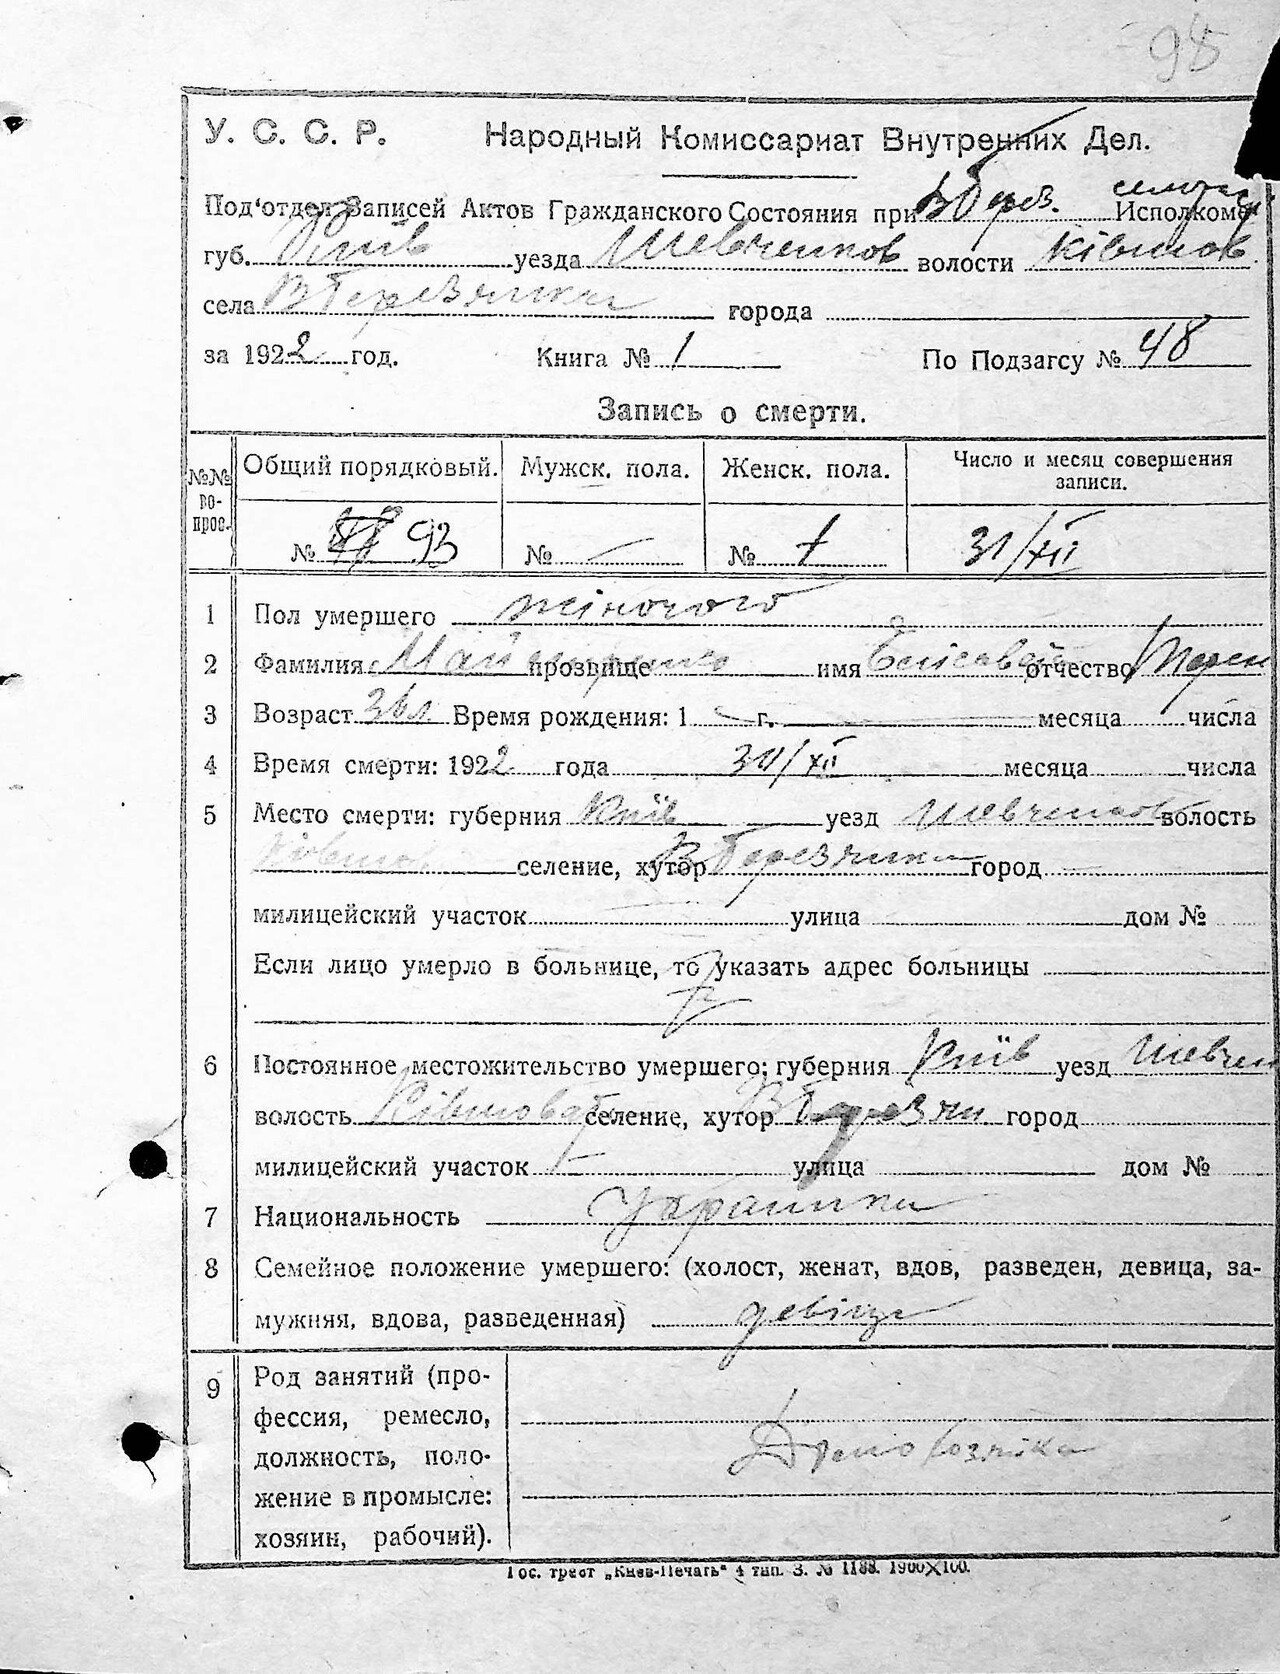 98
У. С. С. Р. Народный Комиссариат Внутренних Дел.
Под'отдел Записей Актов Гражданского Состояния при В Берез. Исполкоме
губ. Київ уезда Шевченков волости Ківшов
села В Березянки города
за 1922 год. Книга № 1 По Подзагсу № 48
Запись о смерти.
№№ вопрос. Общий порядковый. Мужск. пола. Женск. пола. Число и месяц совершения записи.
№ 93 № — № 1 31/XII
1 Пол умершего жіночого
2 Фамилия прозвище имя Єлісавета отчество
3 Возраст Время рождения: 1 г. месяца числа
4 Время смерти: 1922 года 30/XII месяца числа
5 Место смерти: губерния Київ уезд Шевченков волость
Ківшов селение, хутор В Березянка город
милицейский участок улица дом №
Если лицо умерло в больнице, то указать адрес больницы
6 Постоянное местожительство умершего: губерния Київ уезд Шевчен
волость Ківшоват селение, хутор В Березян город
милицейский участок — улица дом №
7 Национальность Украинка
8 Семейное положение умершего: (холост, женат, вдов, разведен, девица, за-
мужняя, вдова, разведенная) девіця
9 Род занятий (про-
фессия, ремесло,
должность, поло- Домохозяйка
жение в промысле:
хозяин, рабочий).
Гос. трест „Киев-Печать" 4 тип. З. № 1188. 1900X100.